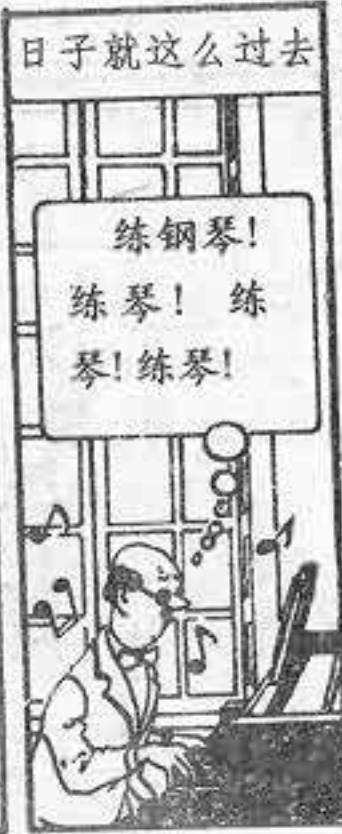 日子就这么过去
练钢琴!
练琴! 练
琴!练琴!